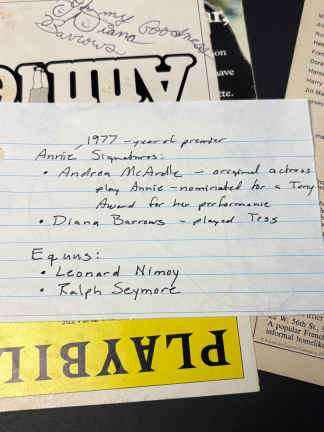 Oh my
Goodness
Diana
Barrows
Annie
on
have
cte.
1977 - year of premier
Annie Signatures:
• Andrea McArdle - original actress
play Annie - nominated for a Tony
Award for her performance
• Diana Barrows - played Tess
Equus:
• Leonard Nimoy
• Ralph Seymore
PLAYBIL
W. 56th St.,
A popular French
informal homelike